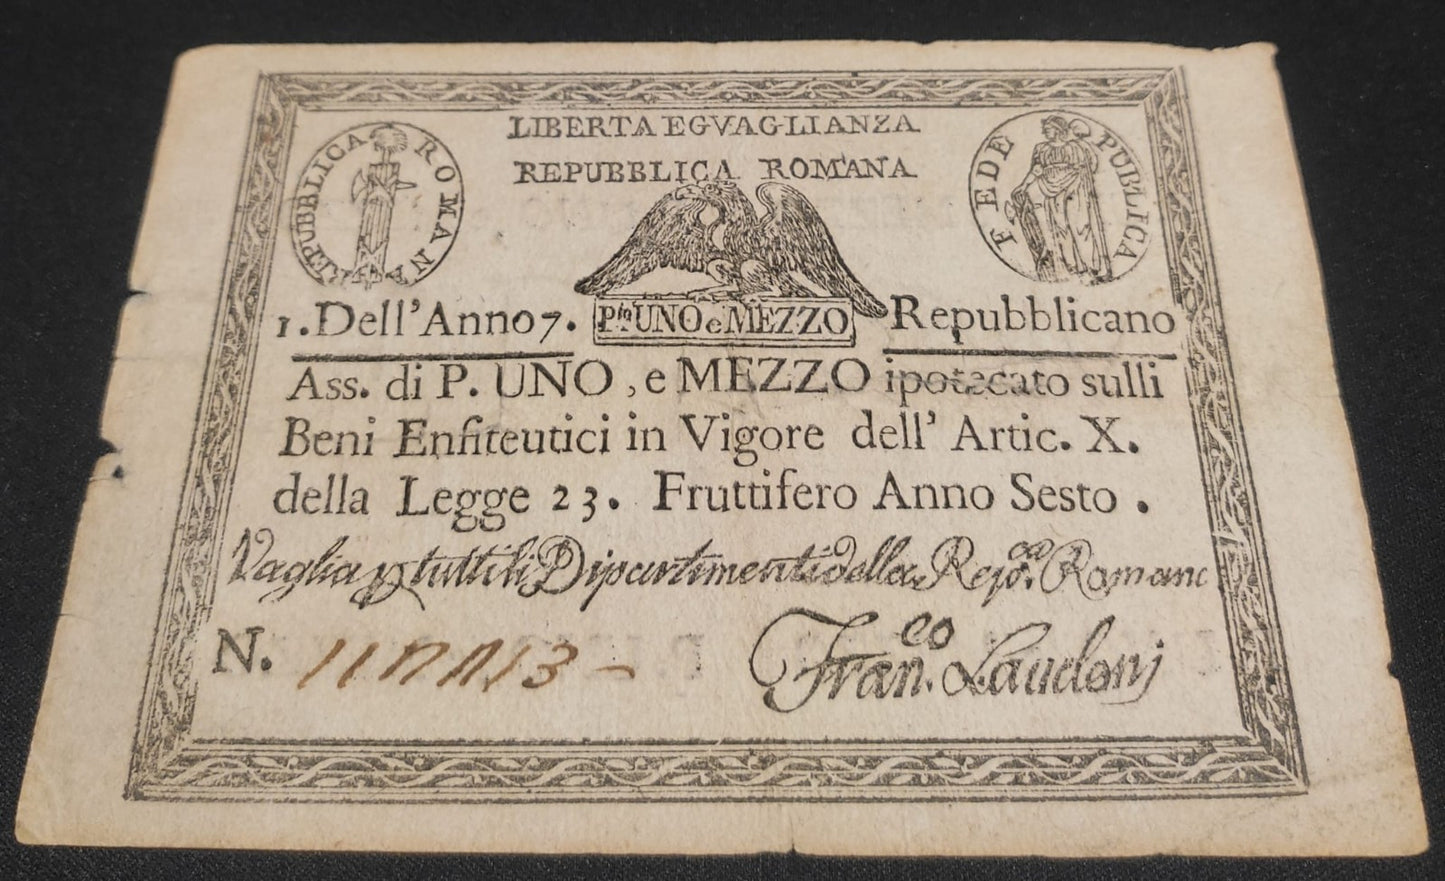 LIBERTA EGVAGLIANZA
REPUBBLICA ROMANA
REPUBBLICA ROMANA
FEDE PUBLICA
1. Dell' Anno 7.
P.ⁿⁱ UNO e MEZZO
Repubblicano
Ass. di P. UNO, e MEZZO ipotecato sulli
Beni Enfiteutici in Vigore dell' Artic. X.
della Legge 23. Fruttifero Anno Sesto.
Vaglia p tutti li Dipartimenti della Rep.ca Romana
N.
Fran.co Laudoni